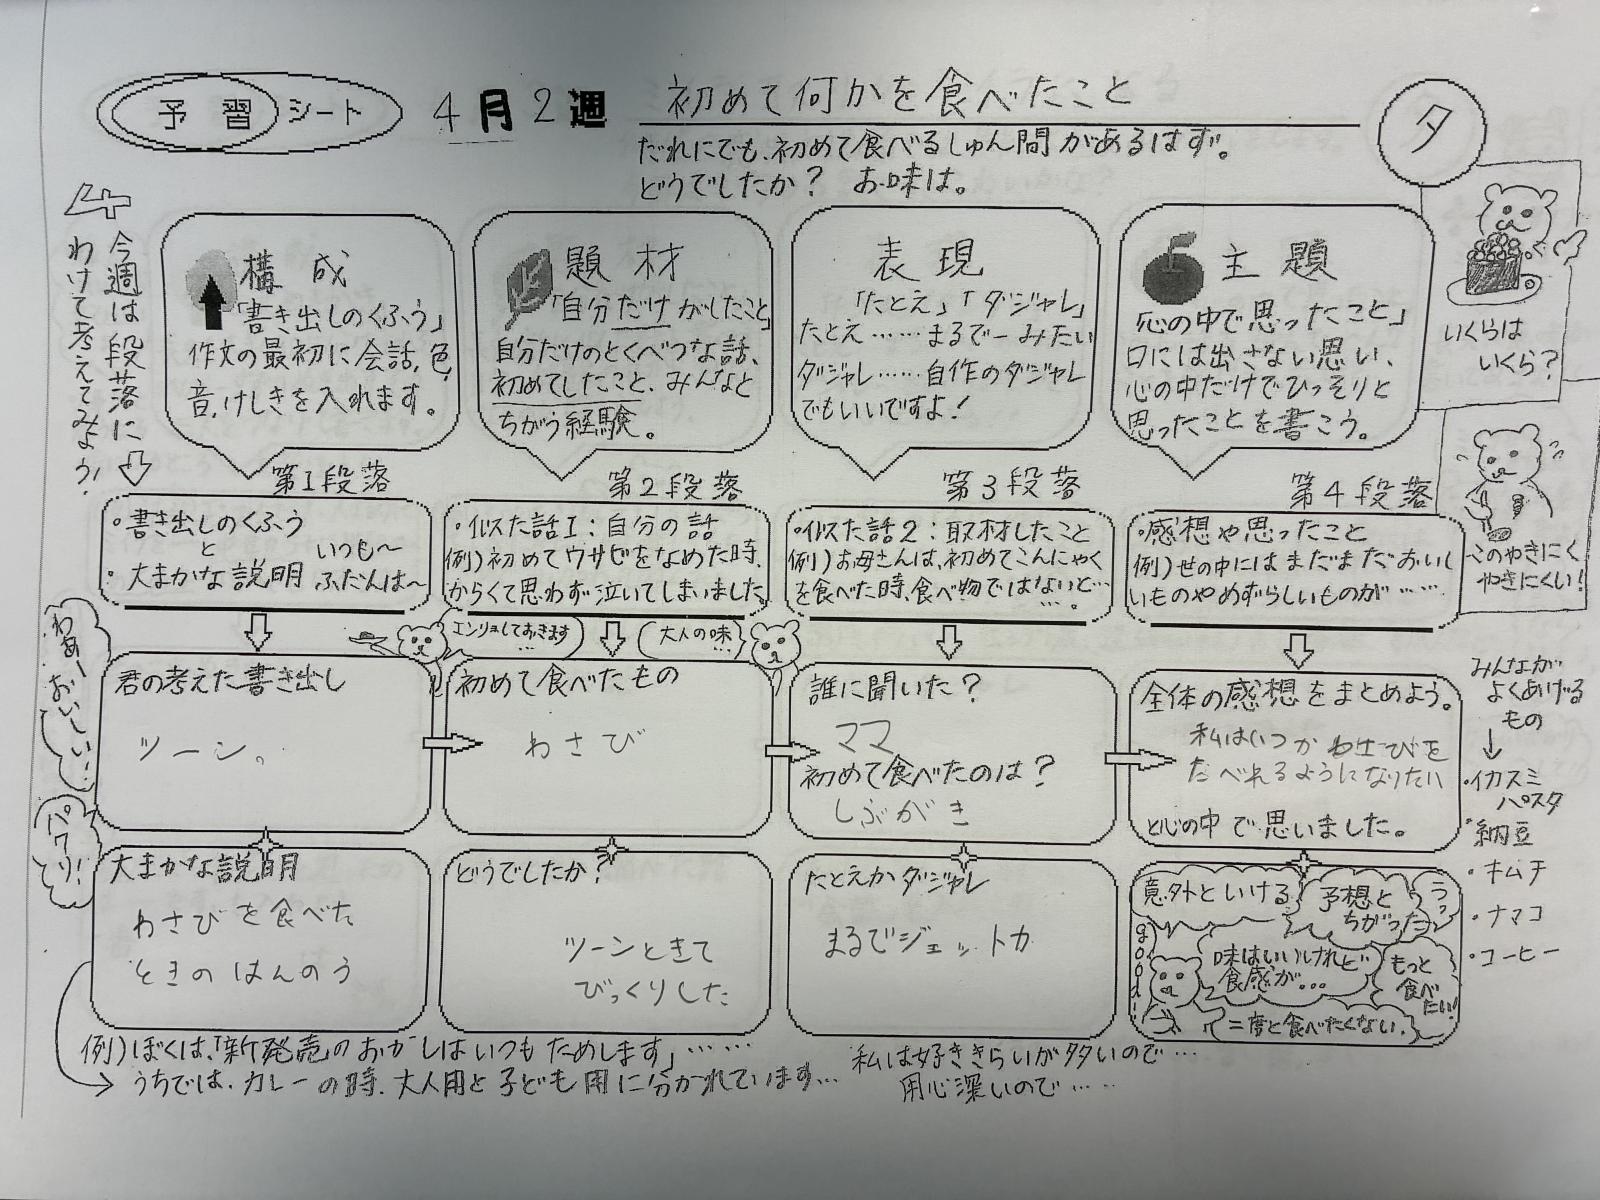 予習シート
4月2週
初めて何かを食べたこと
だれにでも、初めて食べるしゅん間があるはず。
どうでしたか？ お味は。
タ
今週は段落に
わけて考えてみよう！
構成
「書き出しのくふう」
作文の最初に会話、色、
音、けしきを入れます。
題材
「自分だけがしたこと」
自分だけのとくべつな話、
初めてしたこと、みんなと
ちがう経験。
表現
「たとえ」「ダジャレ」
たとえ……まるで～みたい
ダジャレ……自作のダジャレ
でもいいですよ！
主題
「心の中で思ったこと」
口には出さない思い、
心の中だけでひっそりと
思ったことを書こう。
いくらは
いくら？
このやきにく
やきにくい！
第1段落
・書き出しのくふう
と
・大まかな説明
いつも～
ふだんは～
第2段落
・似た話1：自分の話
例）初めてワサビをなめた時、
からくて思わず泣いてしまいました。
第3段落
・似た話2：取材したこと
例）お母さんは、初めてこんにゃく
を食べた時、食べ物ではないと…
…。
第4段落
・感想や思ったこと
例）世の中にはまだまだおいし
いものやめずらしいものが……
わぁーおいしい…
パクリ！
エンリョしておきます
…
大人の味
…
君の考えた書き出し
ツーン。
初めて食べたもの
わさび
誰に聞いた？
ママ
初めて食べたのは？
しぶがき
全体の感想をまとめよう。
私はいつかわさびを
たべれるようになりたい
と心の中で思いました。
みんなが
よくあげる
もの
・イカスミ
パスタ
・納豆
・キムチ
・ナマコ
・コーヒー
大まかな説明
わさびを食べた
ときのはんのう
どうでしたか？
ツーンときて
びっくりした
たとえかダジャレ
まるでジェットカ
意外といける
予想と
ちがった
うっ
good!!
味はいいけれど
食感が…
もっと
食べ
たい！
二度と食べたくない。
例）ぼくは、「新発売」のおかしはいつもためします」……
うちでは、カレーの時、大人用と子ども用に分かれています…
私は好ききらいが多いので…
用心深いので……